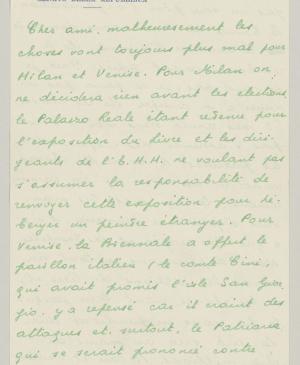 Cher ami, malheuresement les
choses vont toujours plus mal pour
Milan et Venise. Pour Milan on
ne décidera rien avant les elections
le Palazzo Reale étant retenu pour
l'exposition du Livre et les diri-
geants de l'E.H.H. ne voulant pas
s'assumer la responsabilité de
renvoyer cette exposition pour hé-
berger un peintre étranger. Pour
Venise, la Biennale a offert le
pavillon italien (le comte Cini,
qui avait promis l'isle San Gior-
gio, y a repensé car il craint des
attaques et, surtout, le Patriarca
qui se serait prononcé contre